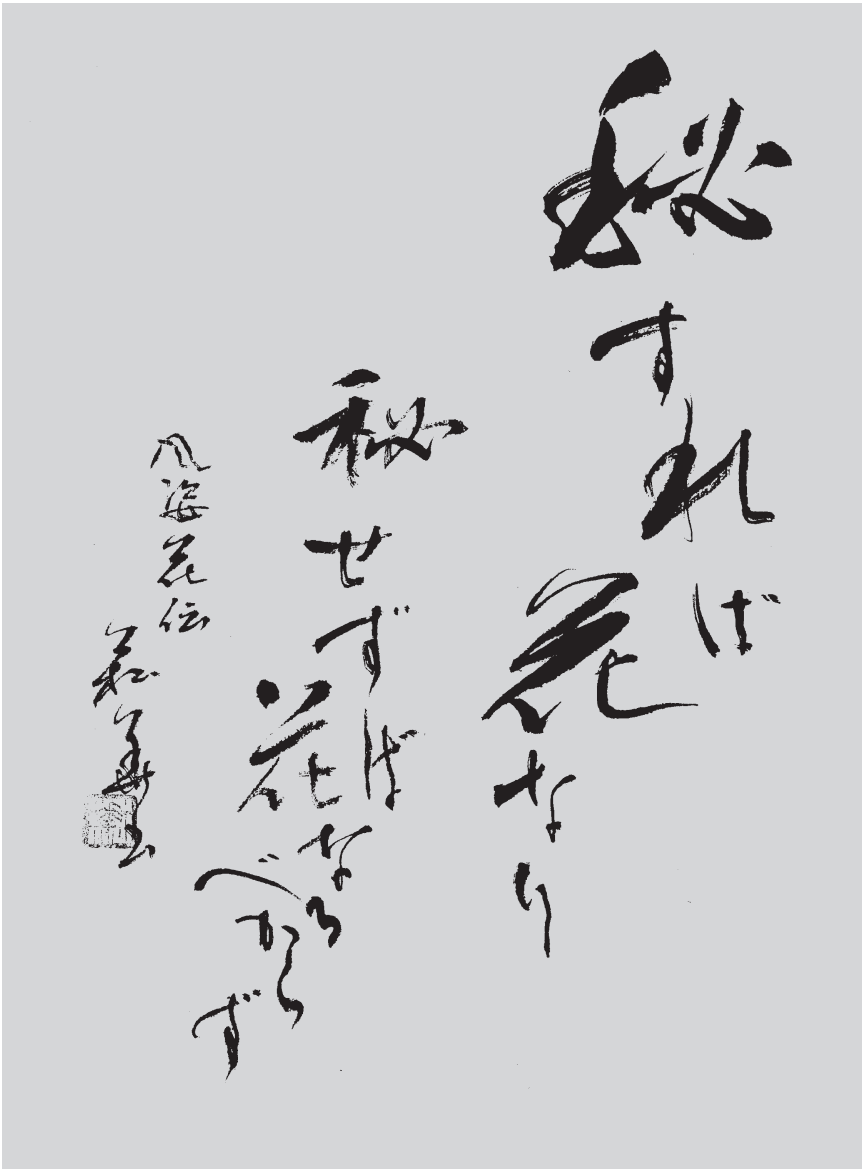 秘すれば
花なり
秘せずば
花なる
べからず
風姿花伝